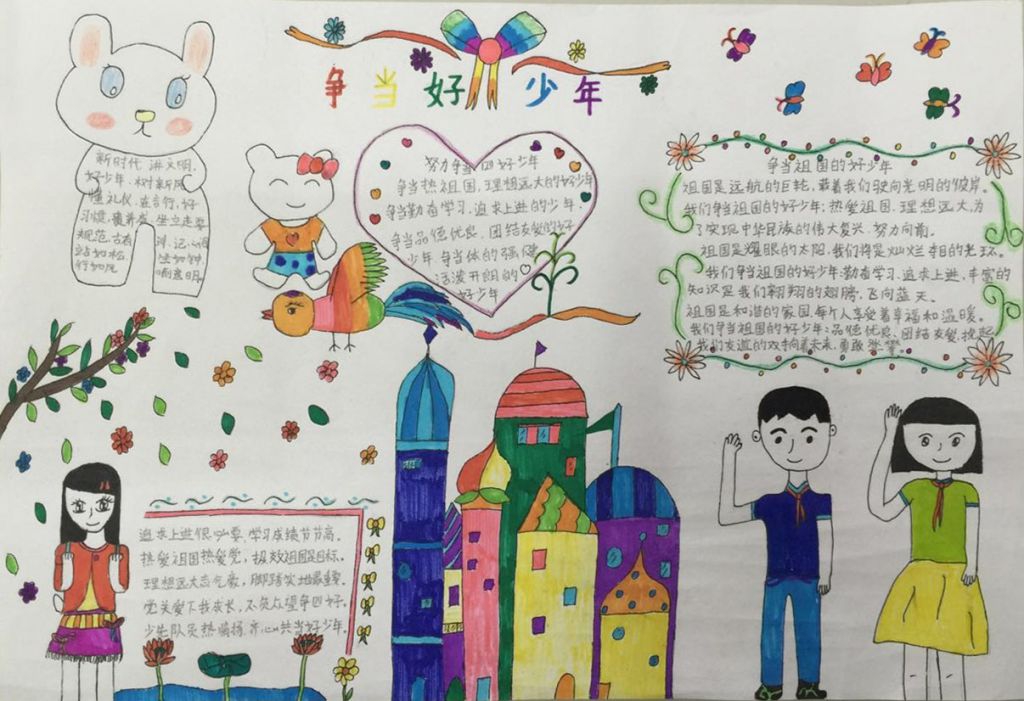 争当好少年
新时代 讲文明,
好少年 树新风
懂礼仪, 在言行, 好
习惯, 要养成 坐立走要
规范, 古有 训, 记心间
站如松, 坐如钟,
行如风
努力争当四好少年
争当热祖国, 理想远大的好少年
争当勤奋学习, 追求上进的少年,
争当品德优良, 团结友爱的好
少年, 争当体的强健
活泼开朗的
好少年
争当祖国的好少年
祖国是远航的巨轮, 载着我们驶向光明的彼岸。
我们争当祖国的好少年: 热爱祖国, 理想远大, 为
了实现中华民族的伟大复兴, 努力向前。
祖国是耀眼的太阳, 我们将是灿烂夺目的光环。
我们争当祖国的好少年勤奋学习, 追求上进, 丰富的
知识是我们翱翔的翅膀, 飞向蓝天。
祖国是和谐的家园, 每个人享受着幸福和温暖。
我们争当祖国的好少年: 品德优良, 团结友爱, 挽起
我们友谊的双手向着未来, 勇敢
追求上进很必要, 学习成绩节节高。
热爱祖国热爱党, 报效祖国是目标。
理想远大志气豪, 脚踏实地最重要。
党关爱下我成长, 不负众望争四好。
少先队员热情扬, 齐心共当好少年。